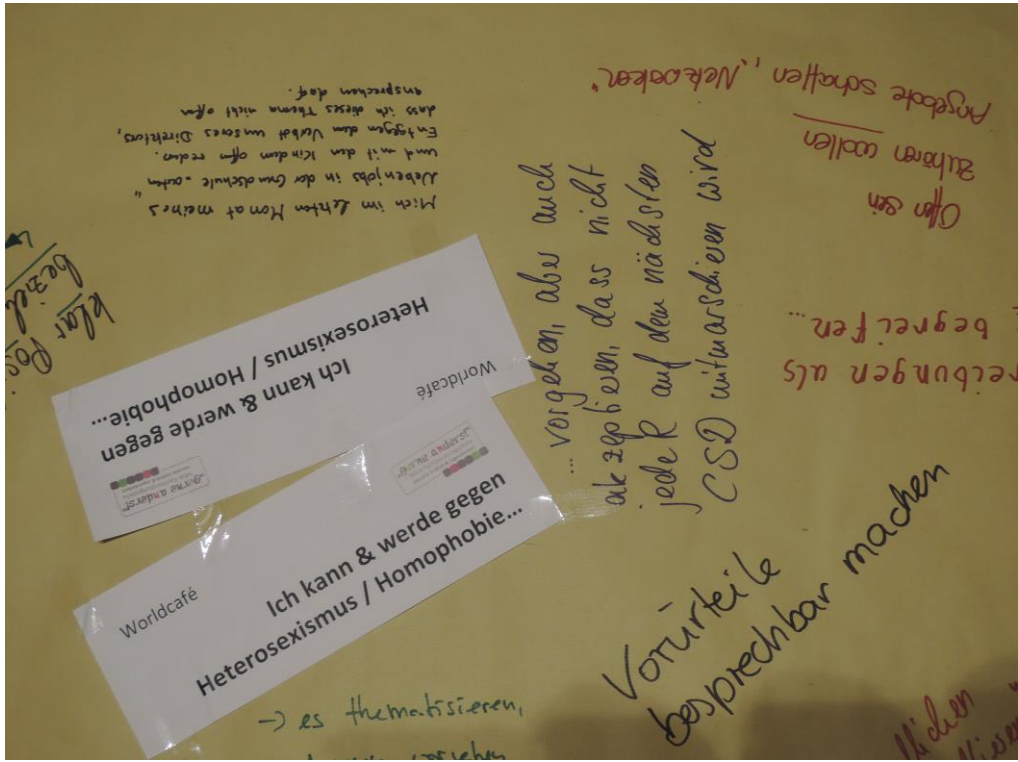 Mich im letzten Monat meines
Nebenjobs in der Grundschule „outen"
und mit den Kindern offen reden.
Entgegen dem Verbot unseres Direktors,
dass ich dieses Thema nicht offen
ansprechen darf.
Offen sein
zuhören wollen
Angebote schaffen, „Netzwerken"
begreifen...
klar
Worldcafé
Ich kann & werde gegen
Heterosexismus / Homophobie...
"gerne anders!"
Worldcafé
Ich kann & werde gegen
Heterosexismus / Homophobie...
"gerne anders!"
... vorgehen, aber auch
akzeptieren, dass nicht
jedeR auf dem nächsten
CSD mitmarschieren wird
Vorurteile
besprechbar machen
-> es thematisieren,